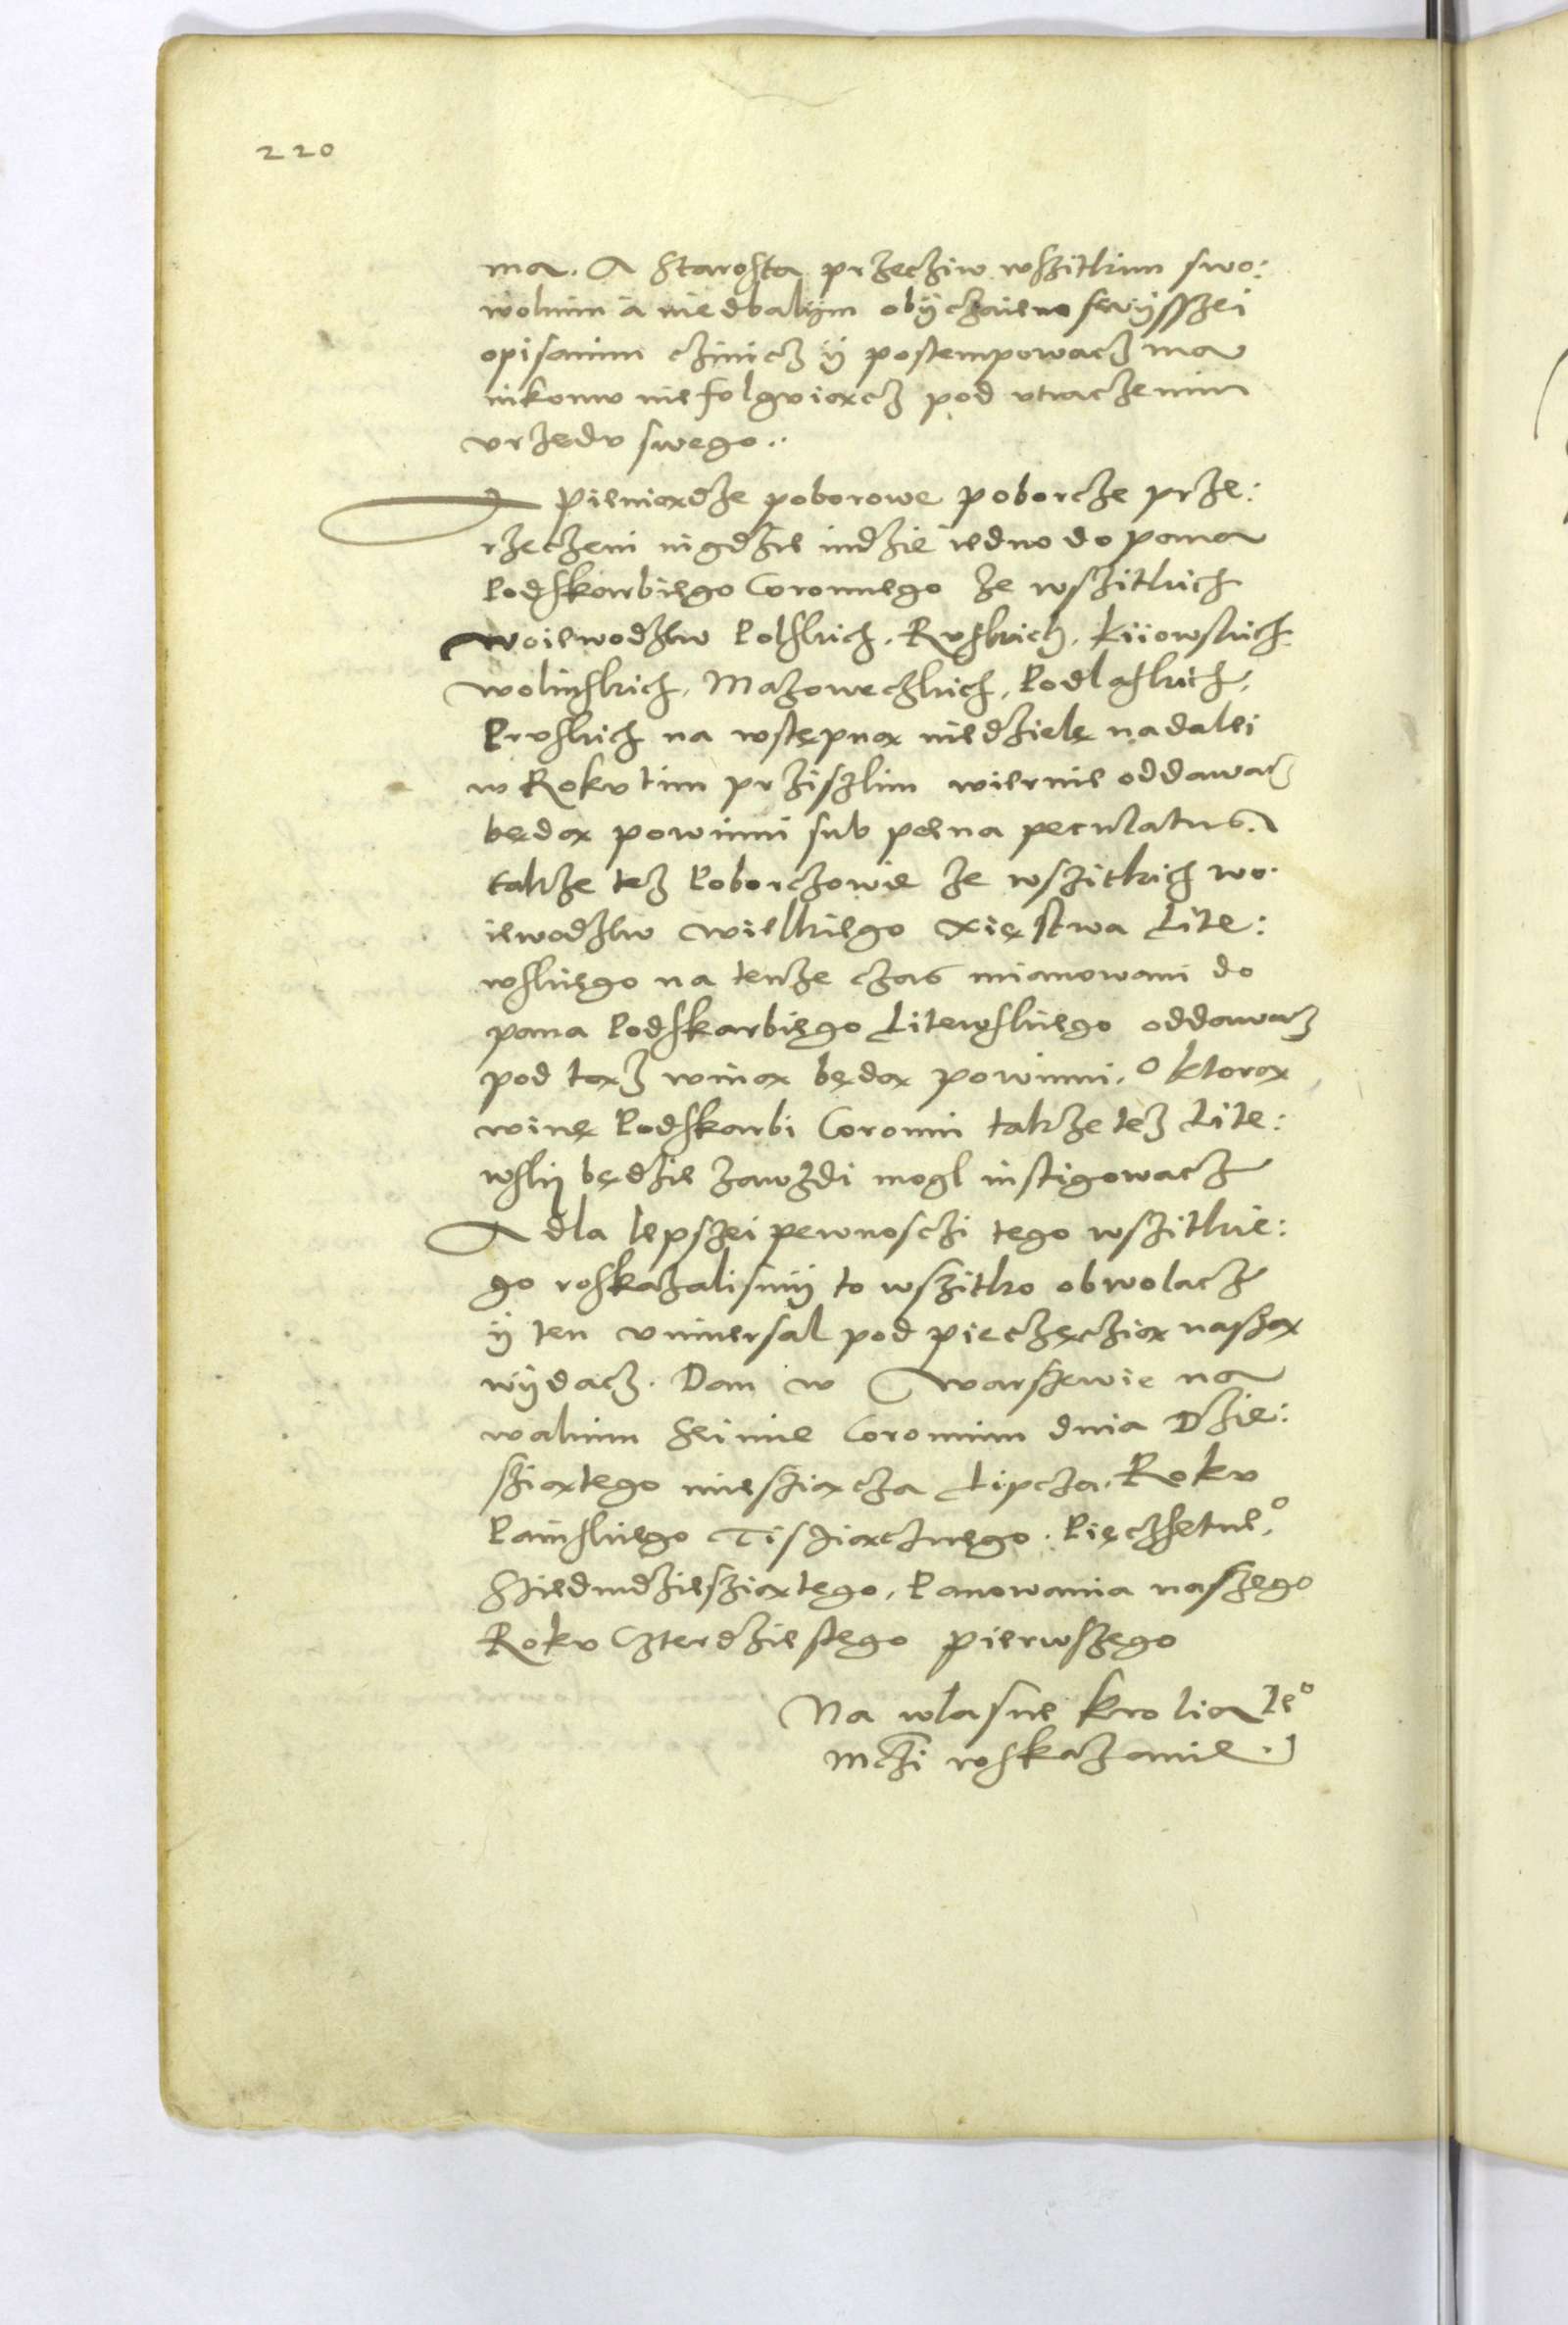 220
ma. A Starosta przecziw wszitkim swo:
wolnim á niedbalijm obÿczaiem swÿsszei
opisanim czinicz ÿ postempowacz ma
nikomu niefolguiącz pod vtraczenim
vrzędu swego..
Pieniądze poborowe poborcze prze:
rzeczeni nigdzie indzie iedno do pana
Podskarbiego Coronnego ze wszitkich
Woiewodztw Polskich, Ruskich, Kÿowskich
wolinskich, Mazoweczkich, Podlaskich,
Pruskich na wstępną niedzielę nadalei
w Roku tim prziszlim wiernie oddawacz
będą powinni sub poena peculatus.
takze tez Poborczowie ze wszitkich wo:
iewodztw wielkiego Xięstwa Lite:
wskiego na tenze czas mianowani do
pana Podskarbiego Litewskiego oddawacz
pod tąz winą będą powinni, o ktorą
winę Podskarbi Coronni takze tez Lite:
wskij będzie zawzdi mogl instigowacz
A dla lepszei pewnosczi tego wszitkie:
go roskazalismÿ to wszitko obwolacz
ÿ ten vniuersal pod pieczęczią naszą
wÿdacz. Dan w Warszewie na
walnim Seimie Coronnim dnia Dzie:
sziątego miesziącza Lipcza. Roku
Painskiego Tisziącznego. Pięczsetne°
Sziedmdziesziątego, Panowania naszego
Roku Czterdziestego pierwszego
Na wlasne krolia Je°
mczi roskazanie.